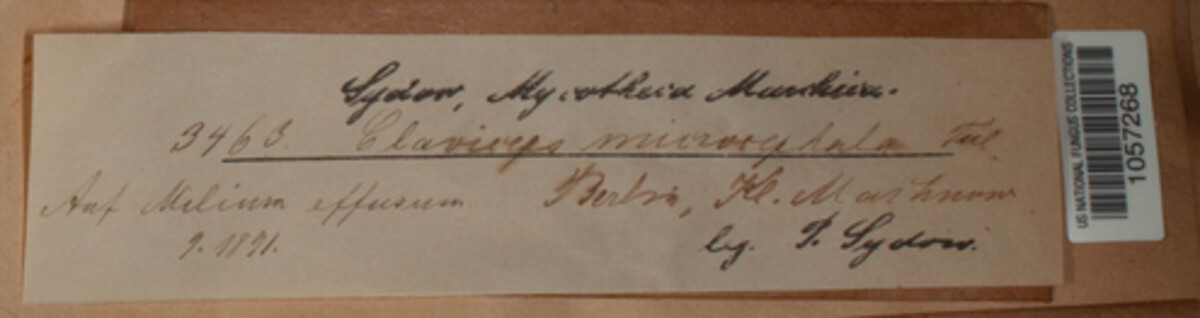 Sydow, Mycotheca Marchica.
3463. Claviceps microcephala Tul.
Auf Milium effusum. Berlin, Kl. Machnow
9. 1891. leg. P. Sydow.
US NATIONAL FUNGUS COLLECTIONS
1057268